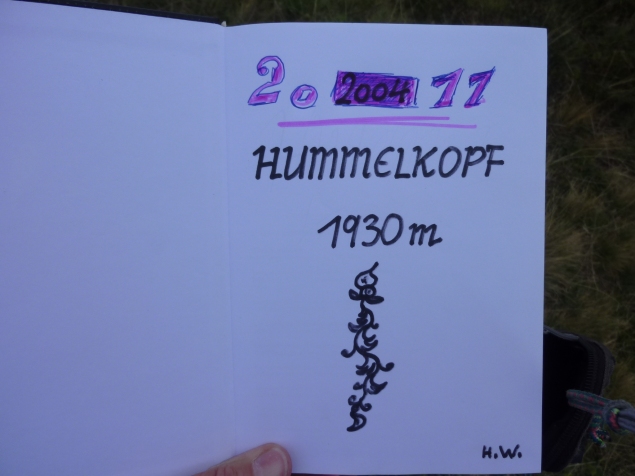 20 2004 11
HUMMELKOPF
1930 m
H.W.